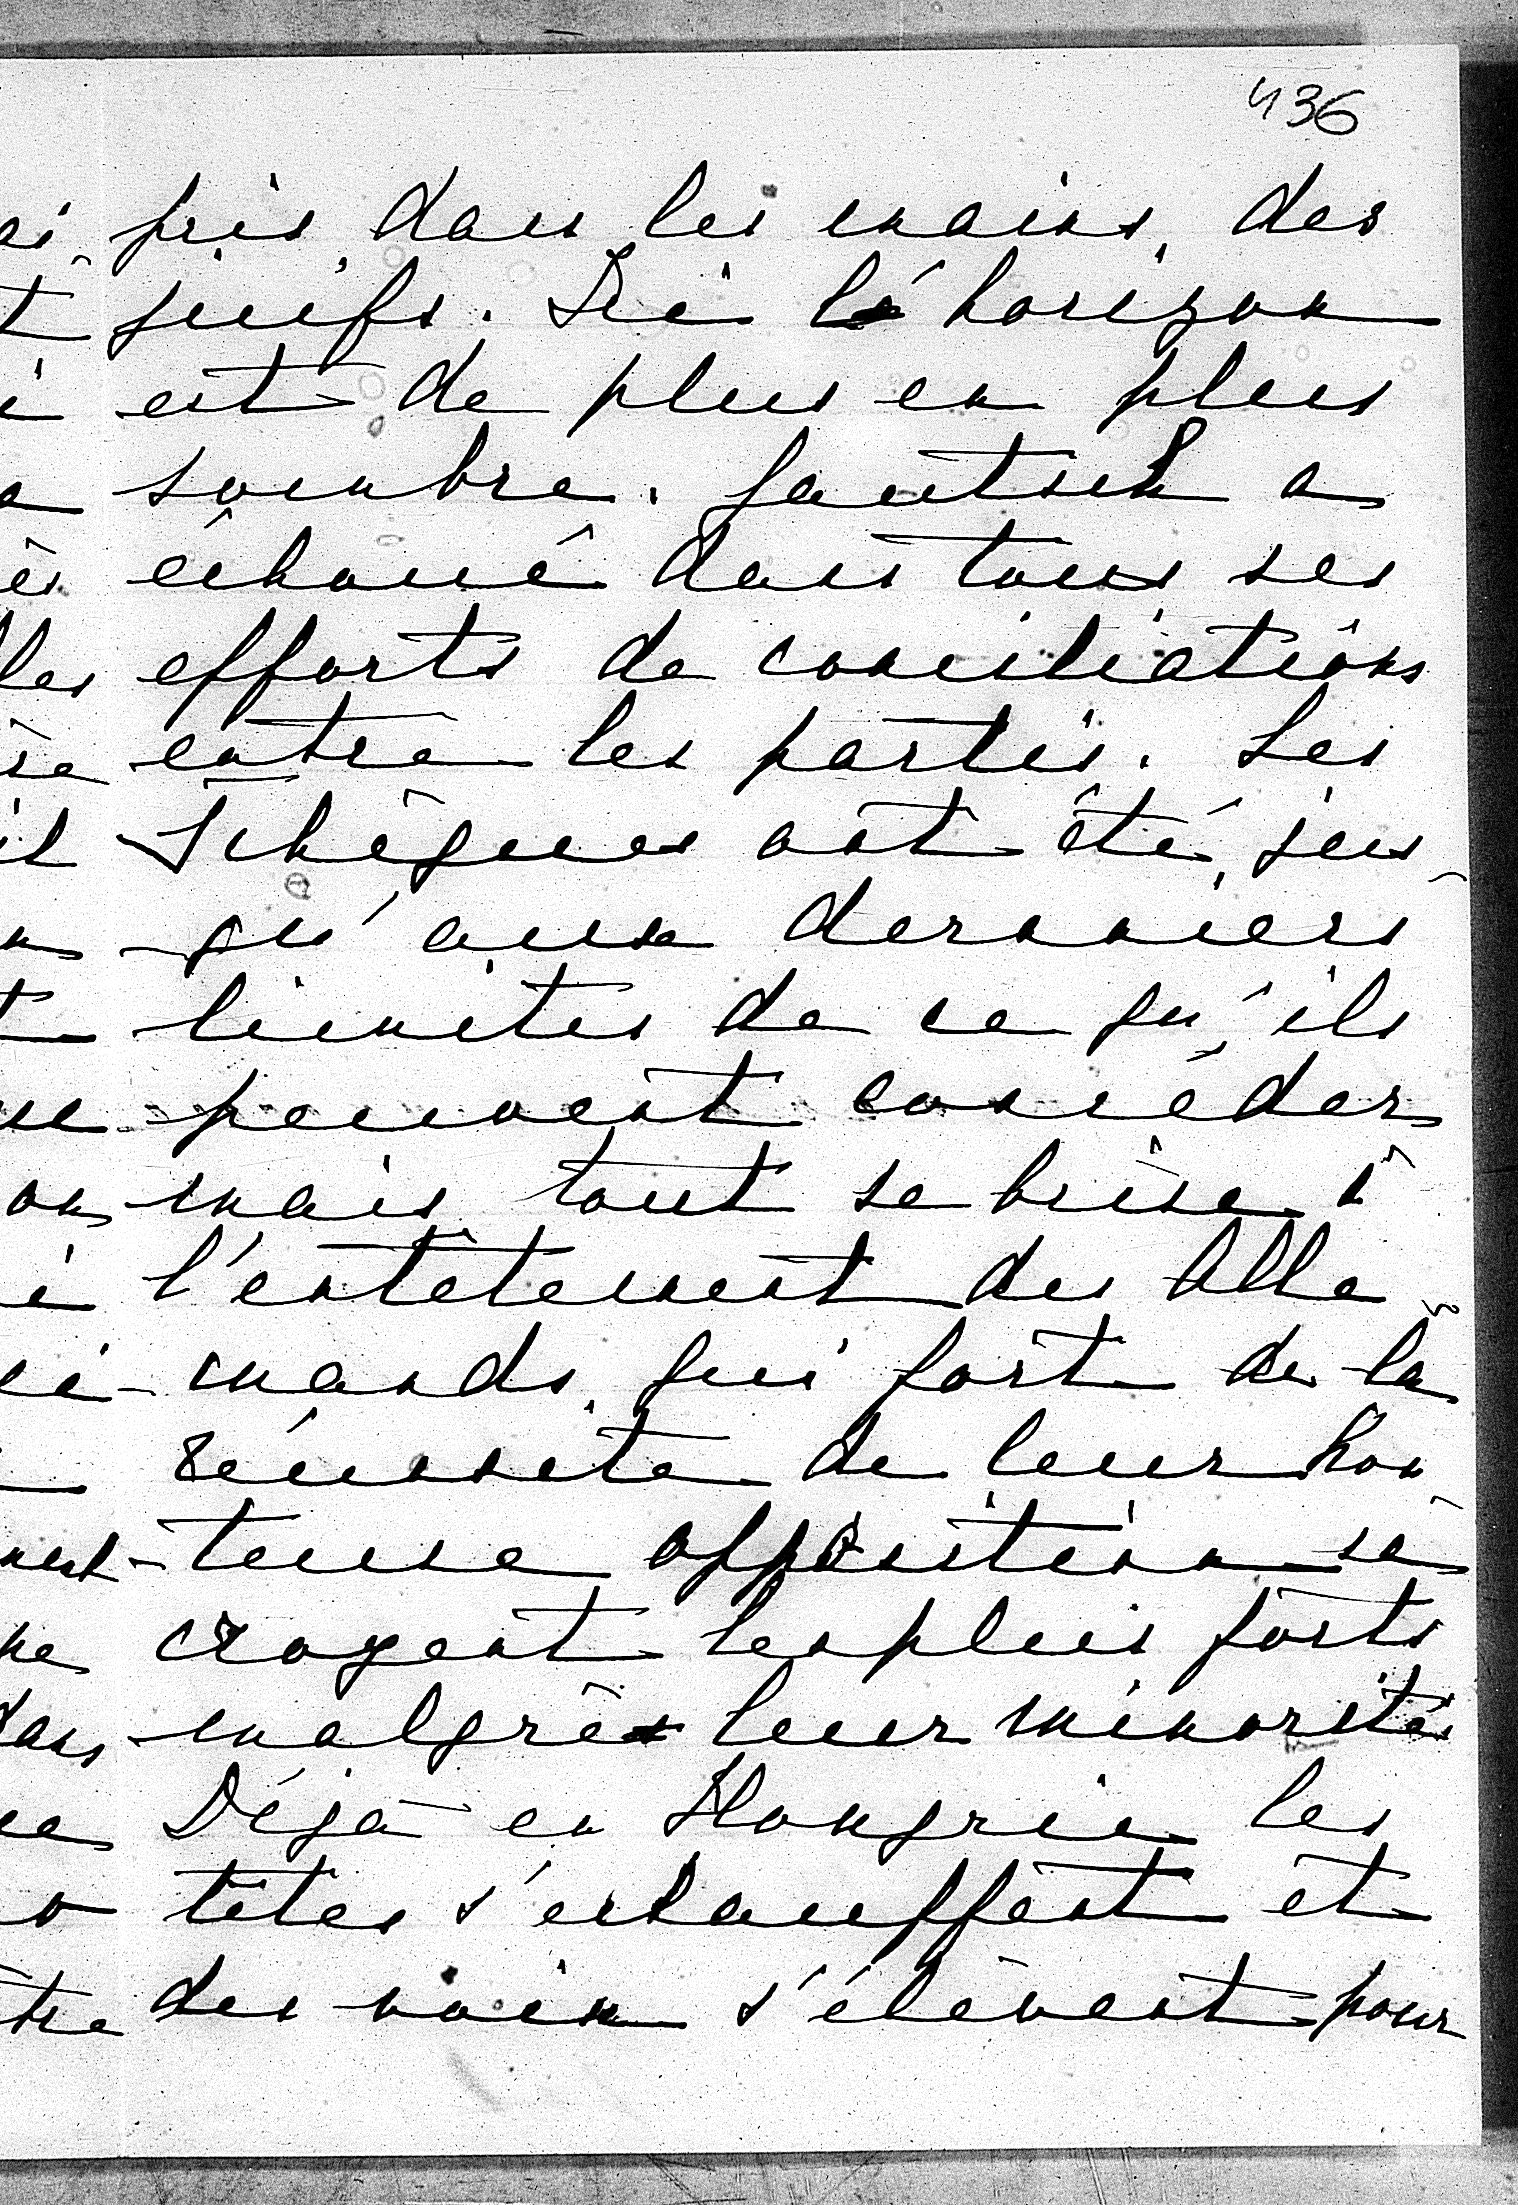 436
pris dans les mains des
juifs. Ici l'horizon
est de plus en plus
sombre. Gautsch a
échoué dans tous ses
efforts de conciliations
entre les partis. Les
Tchègues ont été jus
qu'aux dernniers
limites de ce qu'ils
peuvent conséder
mais tout se brise à
l'entêtement des Alle
mands, qui fort de la
réussite de leur hon
teuse oppösition se
croyent les plus forts
malgrée leur minorités
Déja en Hongrie les
têtes s'echauffent et
des voix s'élèvent pour